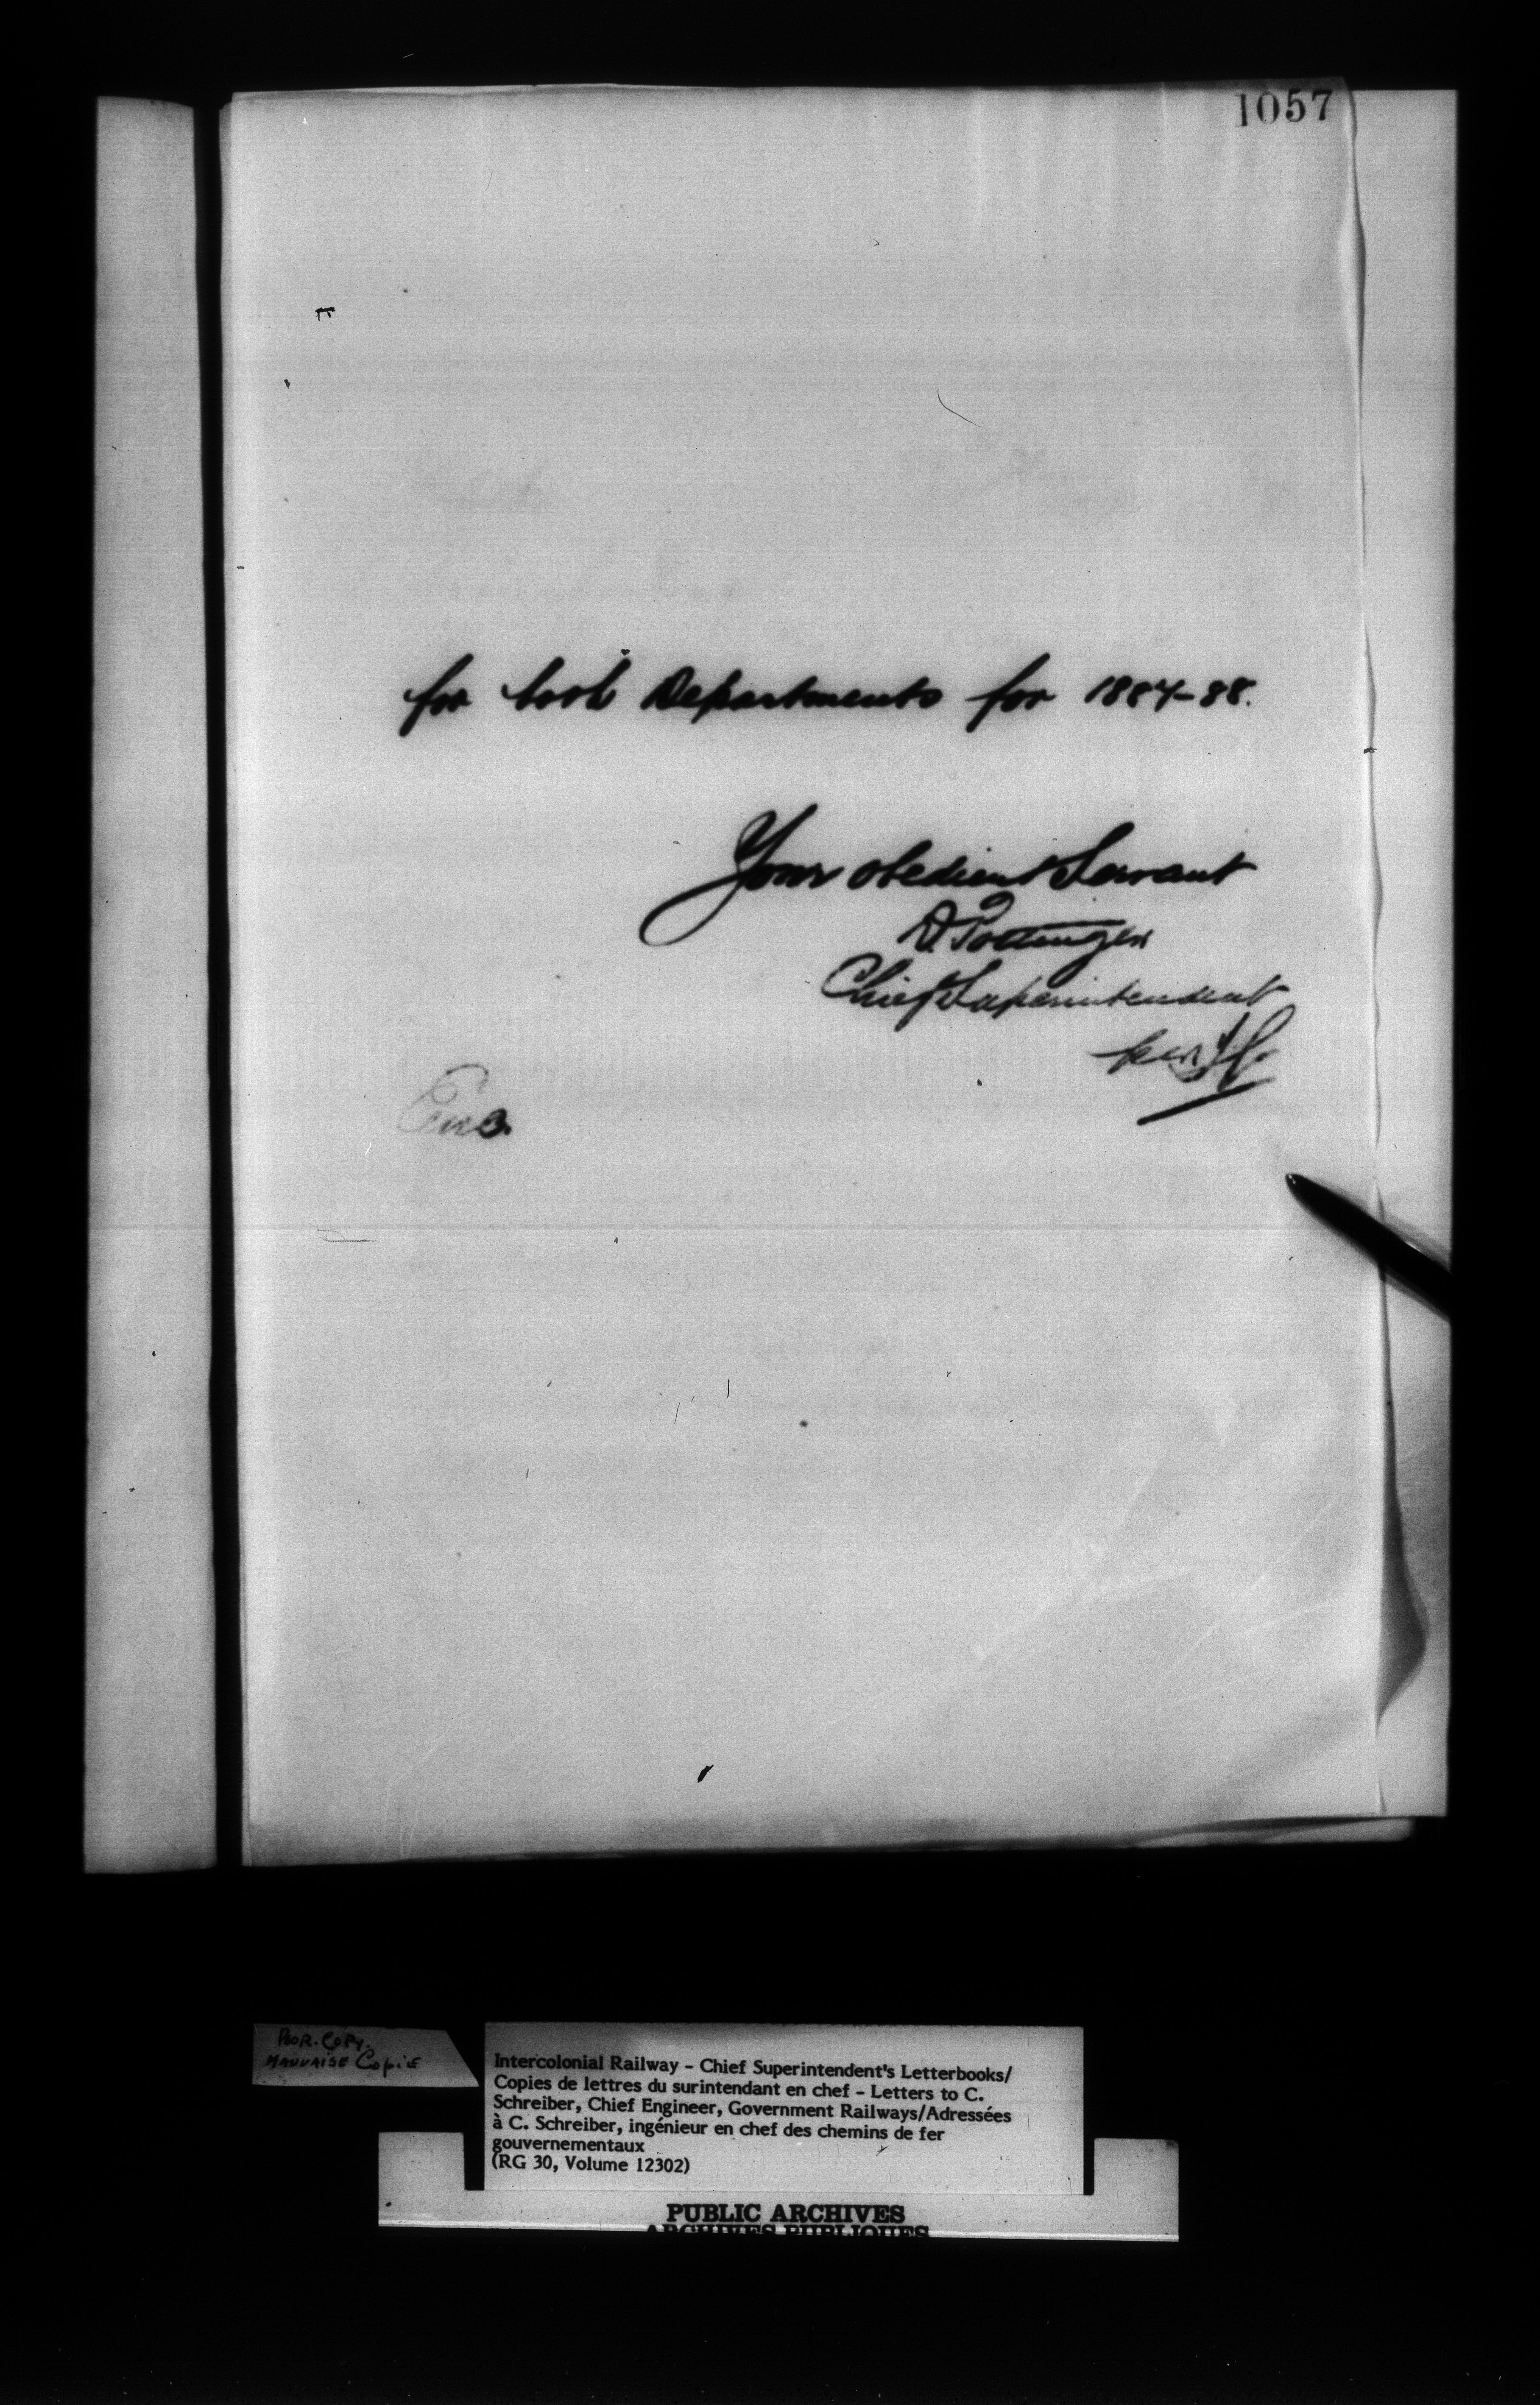 1057
for both Departments for 1887-88.
Your obedient Servant
D. Pottinger
Chief Superintendent
per
Enc.
POOR. COPY.
MAUVAISE COPIE
Intercolonial Railway - Chief Superintendent's Letterbooks/
Copies de lettres du surintendant en chef - Letters to C.
Schreiber, Chief Engineer, Government Railways/Adressées
à C. Schreiber, ingénieur en chef des chemins de fer
gouvernementaux
(RG 30, Volume 12302)
PUBLIC ARCHIVES
ARCHIVES PUBLIQUES